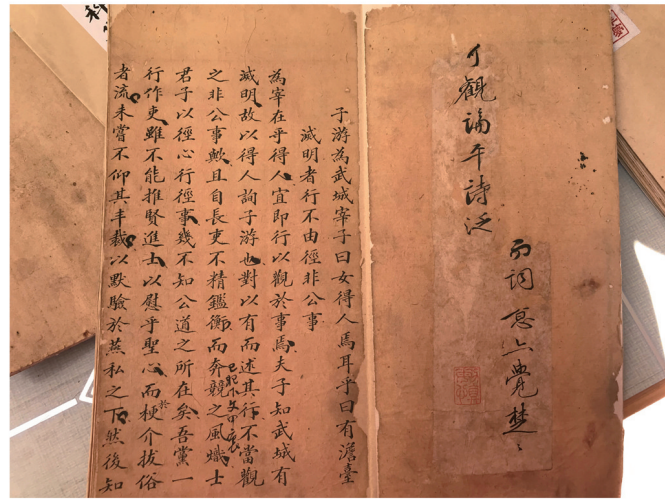 觀論平詩泛
而詞意亦覺楚
子游為武城宰子曰女得人焉耳乎曰有澹臺
滅明者行不由徑非公事
為宰在乎得人宜即行以觀於事焉夫子知武城有
滅明故以得人詢子游也對以有而述其行不當觀
之非公事歟且自長吏不精鑑衡而奔競之風熾士
君子以徑心行徑事幾不知公道之所在矣吾黨一
行作吏雖不能推賢進士以慰乎聖心而梗介拔俗
於
者流未嘗不仰其丰裁以默驗於燕私之下然後知